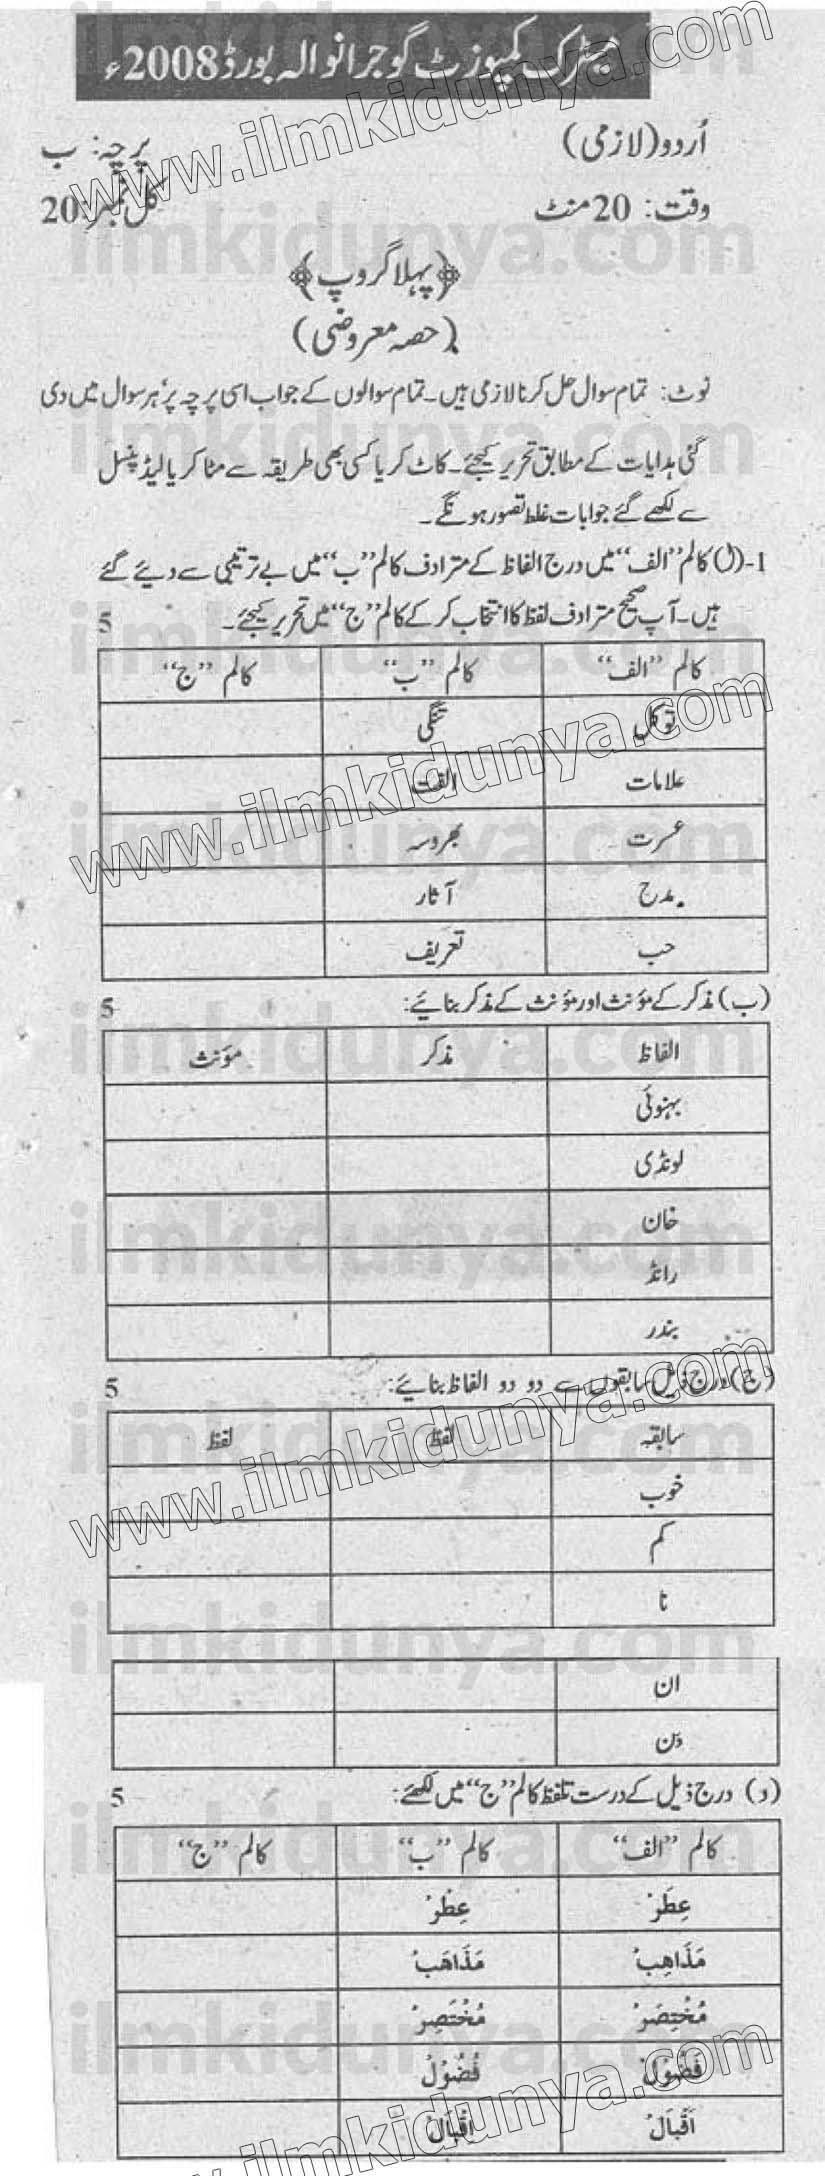 میٹرک کمپوزٹ گوجرانوالہ بورڈ 2008ء
اُردو(لازمی) پرچہ: ب
وقت: 20 منٹ کل نمبر: 20
﴿پہلا گروپ﴾
(حصہ معروضی)
نوٹ: تمام سوال حل کرنا لازمی ہیں۔ تمام سوالوں کے جواب اسی پرچہ پر' ہر سوال میں دی
گئی ہدایات کے مطابق تحریر کیجئے۔ کاٹ کر یا کسی بھی طریقہ سے مٹا کر یا لیڈ پنسل
سے لکھے گئے جوابات غلط تصور ہونگے۔
1-(ل) کالم "الف" میں درج الفاظ کے مترادف کالم "ب" میں بے ترتیبی سے دیئے گئے
ہیں۔ آپ صحیح مترادف لفظ کا انتخاب کر کے کالم "ج" میں تحریر کیجئے۔ 5
کالم "الف" کالم "ب" کالم "ج"
توکل تنگی
علامات الفت
عسرت بھروسہ
مدح آثار
حب تعریف
(ب) مذکر کے مؤنث اور مؤنث کے مذکر بنائیے: 5
الفاظ مذکر مؤنث
بہنوئی
لونڈی
خان
رانڈ
بندر
(ج) درج ذیل سابقوں سے دو دو الفاظ بنائیے: 5
سابقہ لفظ لفظ
خوب
کم
نا
ان
دَن
(د) درج ذیل کے درست تلفظ کالم "ج" میں لکھئے: 5
کالم "الف" کالم "ب" کالم "ج"
عِطَرْ عِطْرْ
مَذَاهِبْ مَذَاهَبْ
مُخْتِصَرْ مُخْتَصِرْ
فَضُوْلْ فُضُوْلْ
اَقْبَالْ اِقْبَالْ
www.ilmkidunya.com
www.ilmkidunya.com
www.ilmkidunya.com
www.ilmkidunya.com
ilmkidunya.com
ilmkidunya.com
ilmkidunya.com
ilmkidunya.com
ilmkidunya.com
ilmkidunya.com
ilmkidunya.com
ilmkidunya.com
ilmkidunya.com
ilmkidunya.com
ilmkidunya.com